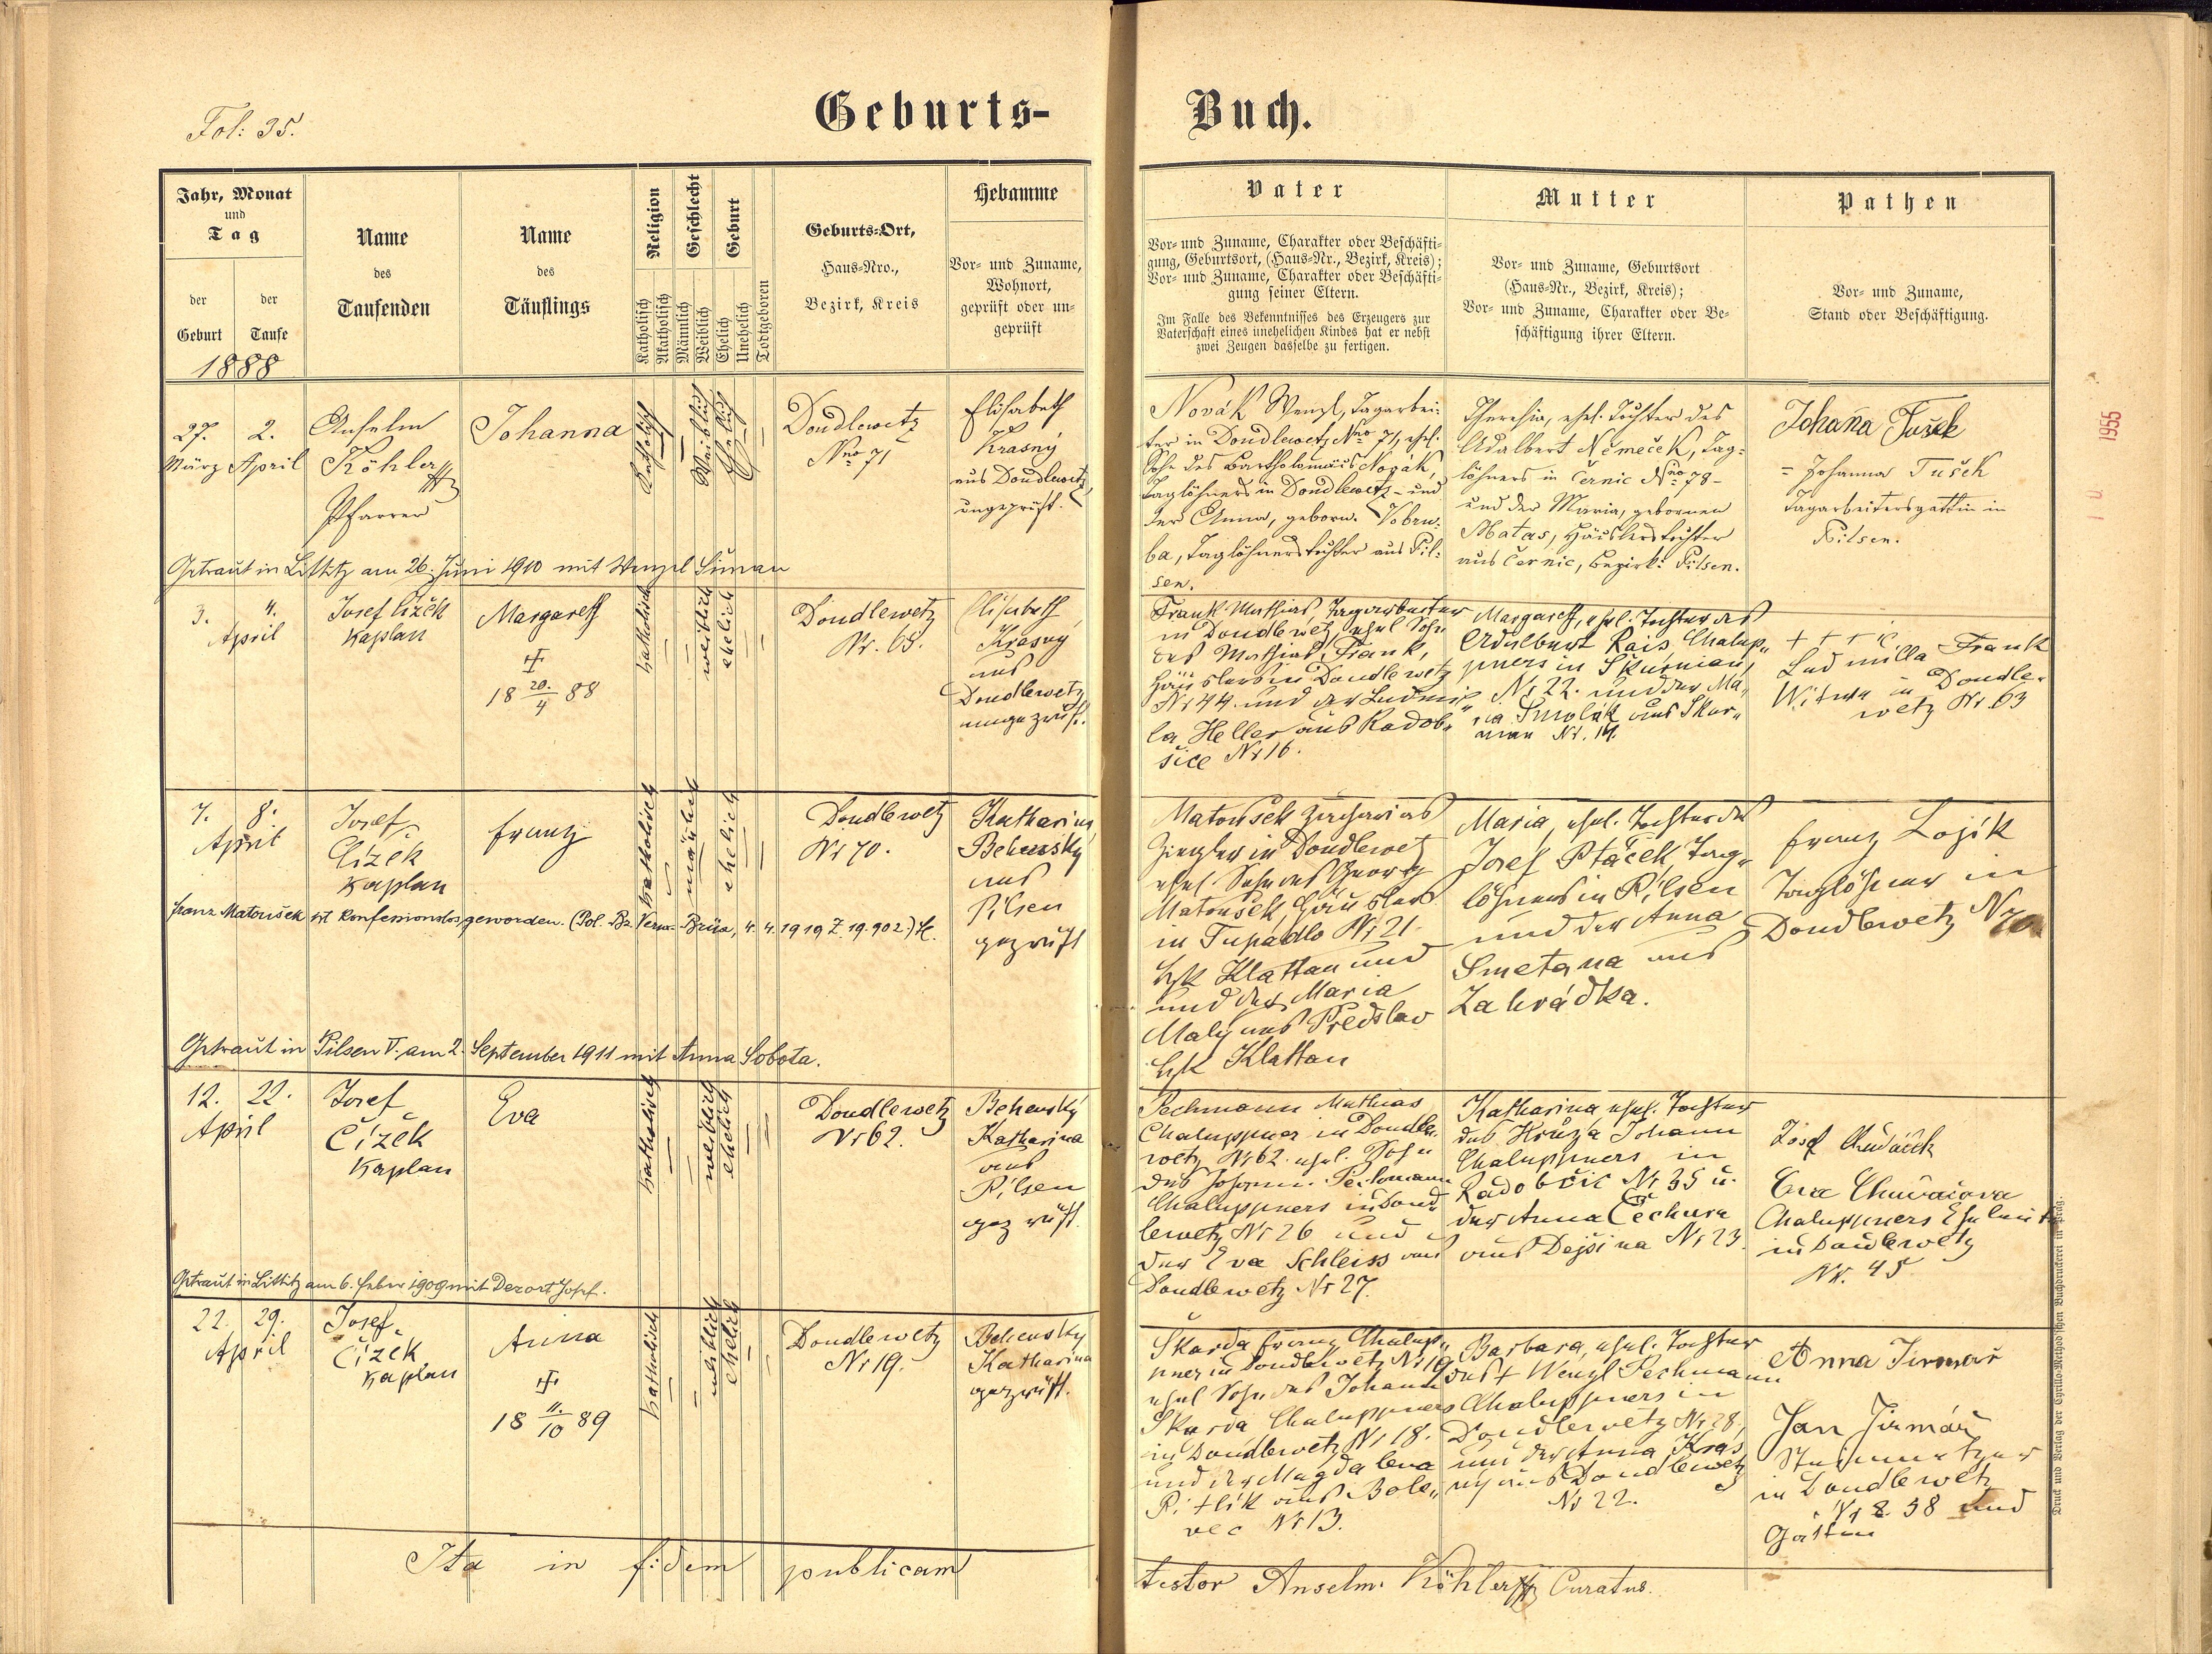 Fol: 35.
Geburts-
Buch.
Jahr, Monat
und
Tag
der Geburt
der Taufe
1888
Name
des
Taufenden
Name
des
Täuflings
Religion
Katholisch
Akatholisch
Geschlecht
Männlich
Weiblich
Geburt
Ehelich
Unehelich
Todtgeboren
Geburts-Ort,
Haus-Nro.,
Bezirk, Kreis
Hebamme
Vor- und Zuname,
Wohnort,
geprüft oder un-
geprüft
Vater
Vor- und Zuname, Charakter oder Beschäfti-
gung, Geburtsort, (Haus-Nr., Bezirk, Kreis);
Vor- und Zuname, Charakter oder Beschäfti-
gung seiner Eltern.
Im Falle des Bekenntnisses des Erzeugers zur
Vaterschaft eines unehelichen Kindes hat er nebst
zwei Zeugen dasselbe zu fertigen.
Mutter
Vor- und Zuname, Geburtsort
(Haus-Nr., Bezirk, Kreis);
Vor- und Zuname, Charakter oder Be-
schäftigung ihrer Eltern.
Pathen
Vor- und Zuname,
Stand oder Beschäftigung.
27. 2.
März April
Anselm
Köhler
Pfarrer
Johanna
Katholisch
Weiblich
Ehelich
Doudlewetz
Nro 71
Elisabeth
Krasný
aus Doudlewetz
ungeprüft.
Novák Wenzl, Tagarbei-
ter in Doudlewetz Nro 71, ehel.
Sohn des Bartholomäus Novák,
Taglöhners in Doudlewetz - und
der Anna, geborn. Vobru-
ba, Taglöhnerstochter aus Pil-
sen.
Theresia, ehel. Tochter des
Adalbert Němeček, Tag-
löhners in Černic Nro 78 -
und der Maria, gebornen
Matas, Häuslerstochter
aus Černic, Bezirk: Pilsen.
Johana Tušek
= Johanna Tušek
Tagarbeitersgattin in
Pilsen.
Getraut in Littitz am 26. Juni 1910 mit Wenzel Šiman
3. 4.
April
Josef Čížek
Kaplan
Margareth
18 20./4 88
katholisch
weiblich
ehelich
Doudlewetz
Nr. 63.
Elisabeth
Krasný
aus
Doudlewetz
ungeprüft.
Frank Mathias, Tagarbeiter
in Doudlewetz, ehel Sohn
des Mathias Frank,
Häuslers in Doudlewetz
Nr 44 und der Ludmi-
la Heller aus Radob-
šice Nr 16.
Margareth, ehel. Tochter des
Adalbert Rais, Chalup-
pners in Skurnian,
Nr 22. und der Ma-
ria Smolák aus Skur-
nian Nr. 14.
+ + +
Ludmilla Frank
Witwe in Doudle-
wetz Nr. 63
7. 8.
April
Josef
Čížek
Kaplan
Franz
katholisch
mänlich
ehelich
Doudlewetz
Nr 70.
Katharina
Behenský
aus
Pilsen
geprüft
Matoušek Zacharias
Ziegler in Doudlewetz
ehel Sohn des Georg
Matoušek, Häuslers
in Tupadlo Nr 21
Bzk Klattau und
und der Maria
Malý aus Předslav
Bzk Klattau
Maria, ehel. Tochter des
Josef Ptáček, Tag-
löhners in Pilsen
und der Anna
Smetana aus
Zahrádka.
Franz Lojík
Taglöhner in
Doudlewetz N 70
Franz Matoušek ist konfessionslos geworden. (Pol. Bz. Verw. Brüx, 4. 4. 1919 Z. 19.902.)
Getraut in Pilsen V. am 2. September 1911 mit Anna Sobota.
12. 22.
April
Josef
Čížek
Kaplan
Eva
katholisch
weiblich
ehelich
Doudlewetz
Nr 62.
Behenský
Katharina
aus
Pilsen
geprüft.
Pechmann Mathias
Chaluppner in Doudle-
wetz Nr 62. ehel. Sohn
des Johann Pechmann
Chaluppners in Doud-
lewetz Nr 26 und
der Eva Schleiss aus
Doudlewetz Nr 27.
Katharina ehel. Tochter
des Hrůza Johann
Chaluppners in
Radobčic Nr 35 u.
der Anna Čechura
aus Dejšina Nr 23.
Josef Chudáček
Eva
Chaluppners Eheleute
in Doudlewetz
Nr. 45
Getraut in Littitz am 6. Feber 1909 mit Dezort Josef.
22. 29.
April
Josef
Čížek
Kaplan
Anna
18 11./10 89
katholisch
weiblich
ehelich
Doudlewetz
Nr 19.
Behenský
Katharina
geprüft.
Škarda Franz Chalup-
pner in Doudlewetz Nr 19
ehel Sohn des Johann
Škarda Chaluppners
in Doudlewetz Nr 18.
und der Magdalena
Pitlík aus Bole-
vec Nr 13.
Barbara, ehel. Tochter
des + Wenzl Pechmann
Chaluppners in
Doudlewetz Nr 28,
und der Anna Kras-
ný aus Doudlewetz
Nr 22.
Anna Jirmař
Jan Jirmář
in Doudlewetz
Nr 38 und
Gattin
Ita in fidem publicam
testor Anselm Köhler Curatus.
1955
Druck und Verlag der Cyrillo-Method'schen Buchdruckerei in Prag.